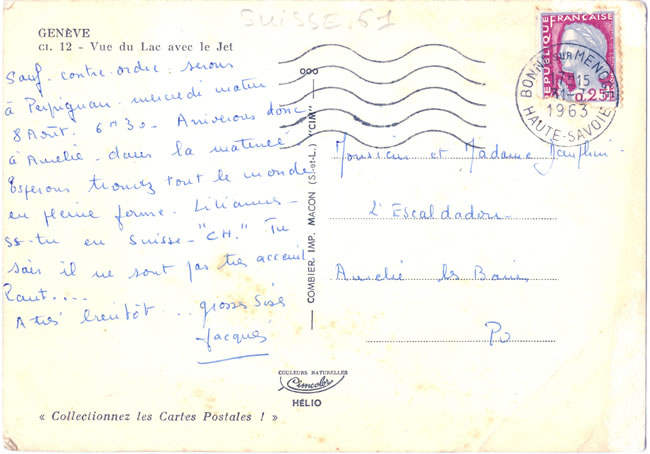 SUISSE.61
GENÈVE
Cl. 12 - Vue du Lac avec le Jet
Sauf contre-ordre: serons
à Perpignan mercredi matin
8 Août. 6h30. Arriverons donc
à Amélie dans la matinée
Espérons trouver tout le monde
en pleine forme.
en Suisse - "CH." Tu
sais il ne sont pas très accueil
lant....
A très bientôt... grosses
Jacques
« Collectionnez les Cartes Postales ! »
ooo
COMBIER IMP. MACON (S.-et-L.) "CIM"
COULEURS NATURELLES
Cimcolor
HÉLIO
REPUBLIQUE FRANÇAISE
0,25
BONNE SUR MENOGE
15
1963
HAUTE-SAVOIE
Monsieur et Madame
L'Escaldadou
Amélie les Bains
Po